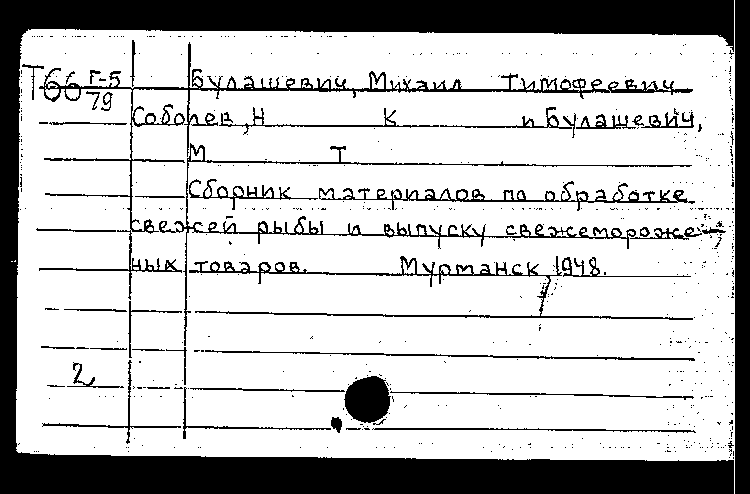 Т66 Г-5 Булашевич, Михаил Тимофеевич
79
Соболев, Н К и Булашевич,
М Т
Сборник материалов по обработке
свежей рыбы и выпуску свежемороже-
ных товаров. Мурманск, 1948.
2